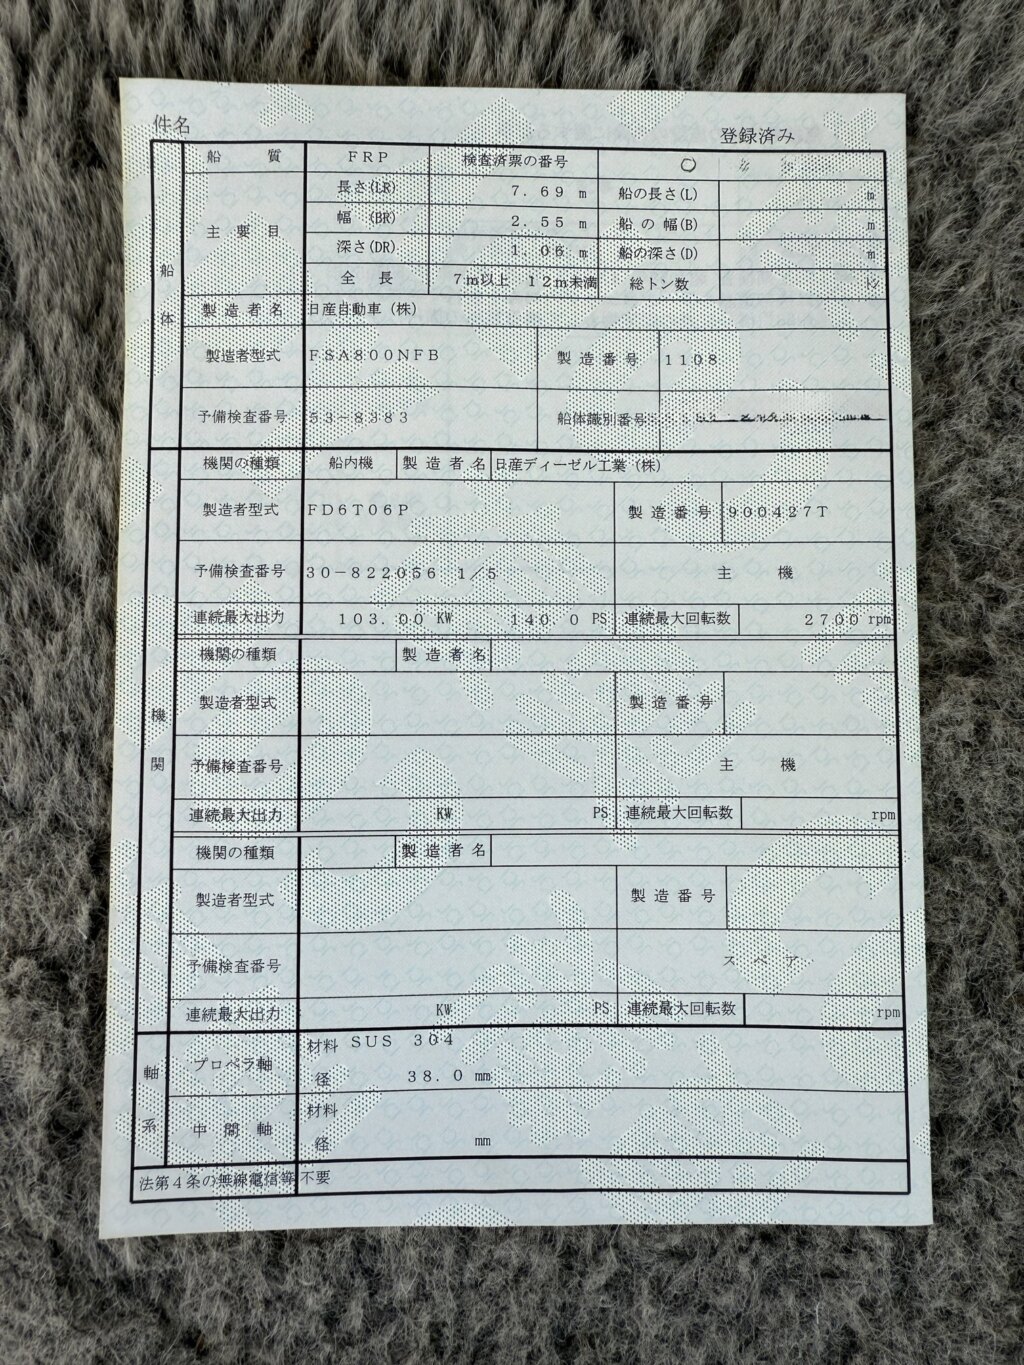 件名
登録済み
船体
船質 FRP 検査済票の番号
主要目 長さ(LR) 7.69 m 船の長さ(L) m
幅 (BR) 2.55 m 船の幅(B) m
深さ(DR) 1.06 m 船の深さ(D) m
全長 7m以上 12m未満 総トン数 トン
製造者名 日産自動車(株)
製造者型式 FSA800NFB 製造番号 1108
予備検査番号 53-8383 船体識別番号
機関
機関の種類 船内機 製造者名 日産ディーゼル工業(株)
製造者型式 FD6T06P 製造番号 900427T
予備検査番号 30-822056 1/5 主機
連続最大出力 103.00 KW 140.0 PS 連続最大回転数 2700 rpm
機関の種類 製造者名
製造者型式 製造番号
予備検査番号 主機
連続最大出力 KW PS 連続最大回転数 rpm
機関の種類 製造者名
製造者型式 製造番号
予備検査番号 スペア
連続最大出力 KW PS 連続最大回転数 rpm
軸系
プロペラ軸 材料 SUS 304
径 38.0 mm
中間軸 材料
径 mm
法第4条の無線電信等 不要